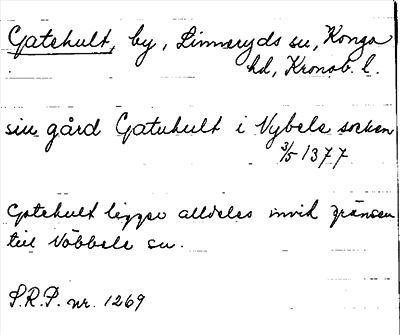 Gatehult, by, Linneryds sn, Konga
hd, Kronob. l.
sin gård Gatuhult i Vybele socken
3/5 1377
Gatehult ligger alldeles invid gränsen
till Väbbele sn.
S.R.P. nr. 1269